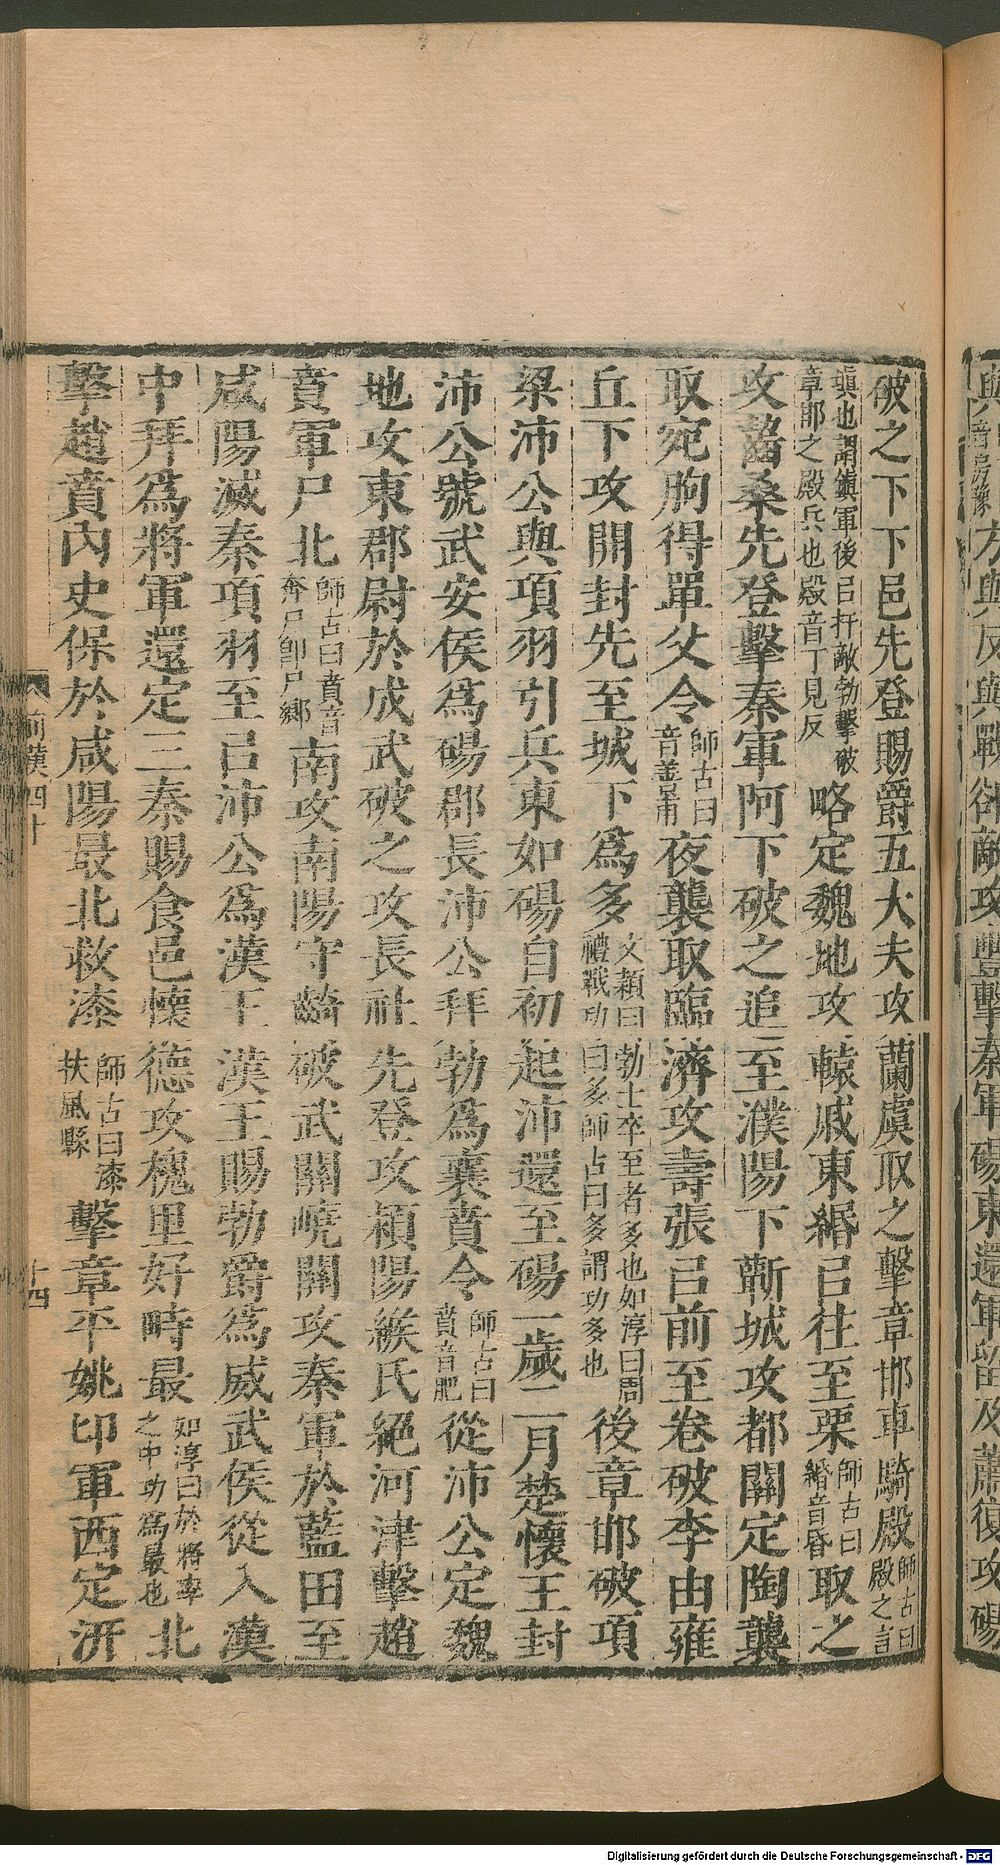 與音房豫方與反與戰卻敵攻豐擊秦軍碭東還軍留及蕭復攻碭
破之下下邑先登賜爵五大夫攻蘭虞取之擊章邯車騎殿師古曰殿之言
塡也謂鎭軍後㠯扞敵勃擊破章邯之殿兵也殿音丁見反略定魏地攻轅戚東緡㠯往至栗師古曰緡音昏取之
攻齧桑先登擊秦軍阿下破之追至濮陽下蘄城攻都關定陶襲
取宛朐得單父令師古曰音善甫夜襲取臨濟攻壽張㠯前至卷破李由雍
丘下攻開封先至城下爲多文穎曰勃士卒至者多也如淳曰周禮戰功曰多師古曰多謂功多也後章邯破項
梁沛公與項羽引兵東如碭自初起沛還至碭一歲二月楚懷王封
沛公號武安侯爲碭郡長沛公拜勃爲襄賁令師古曰賁音肥從沛公定魏
地攻東郡尉於成武破之攻長社先登攻潁陽緱氏絕河津擊趙
賁軍尸北師古曰賁音奔尸卽尸鄉南攻南陽守齮破武關嶢關攻秦軍於藍田至
咸陽滅秦項羽至㠯沛公爲漢王漢王賜勃爵爲威武侯從入漢
中拜爲將軍還定三秦賜食邑懷德攻槐里好畤最如淳曰於將率之中功爲最也北
擊趙賁內史保於咸陽最北救漆師古曰漆扶風縣擊章平姚卬軍西定汧
前漢四十
十四
Digitalisierung gefördert durch die Deutsche Forschungsgemeinschaft - DFG